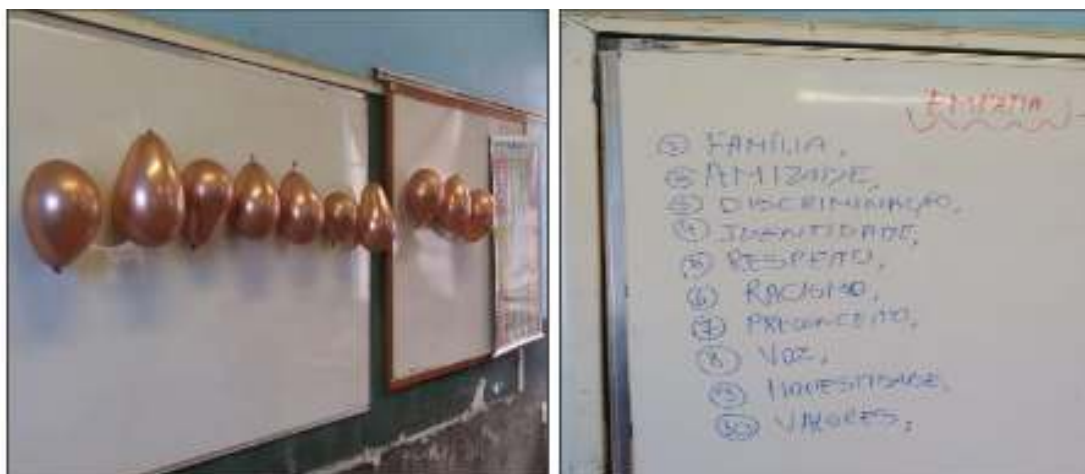 EMPATIA
① FAMÍLIA,
② AMIZADE,
③ DISCRIMINAÇÃO,
④ IDENTIDADE,
⑤ RESPEITO,
⑥ RACISMO,
⑦ PRECONCEITO,
⑧ VOZ,
⑨ HONESTIDADE,
⑩ VALORES,